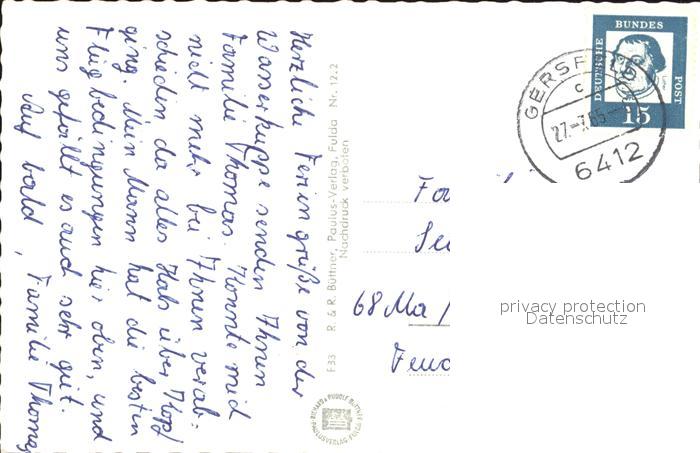 Herzliche Feriengrüße von der
Wasserkuppe senden Ihnen
Familie Thomas. Konnte mid
nicht mehr bei Ihnen verab-
schieden da alles Hals über Kopf
ging. Mein Mann hat die besten
Flugbedingungen hier oben, und
uns gefällt es auch sehr gut.
Auf bald, Familie Thomas
F 33 R. & R. Büttner, Paulus-Verlag, Fulda Nr. 12.2
Nachdruck verboten
RICHARD & RUDOLF BÜTTNER
PAULUSVERLAG FULDA
DEUTSCHE
BUNDES
POST
15
GERSF
c
27.-7.65
6412
68 Ma
privacy protection
Datenschutz